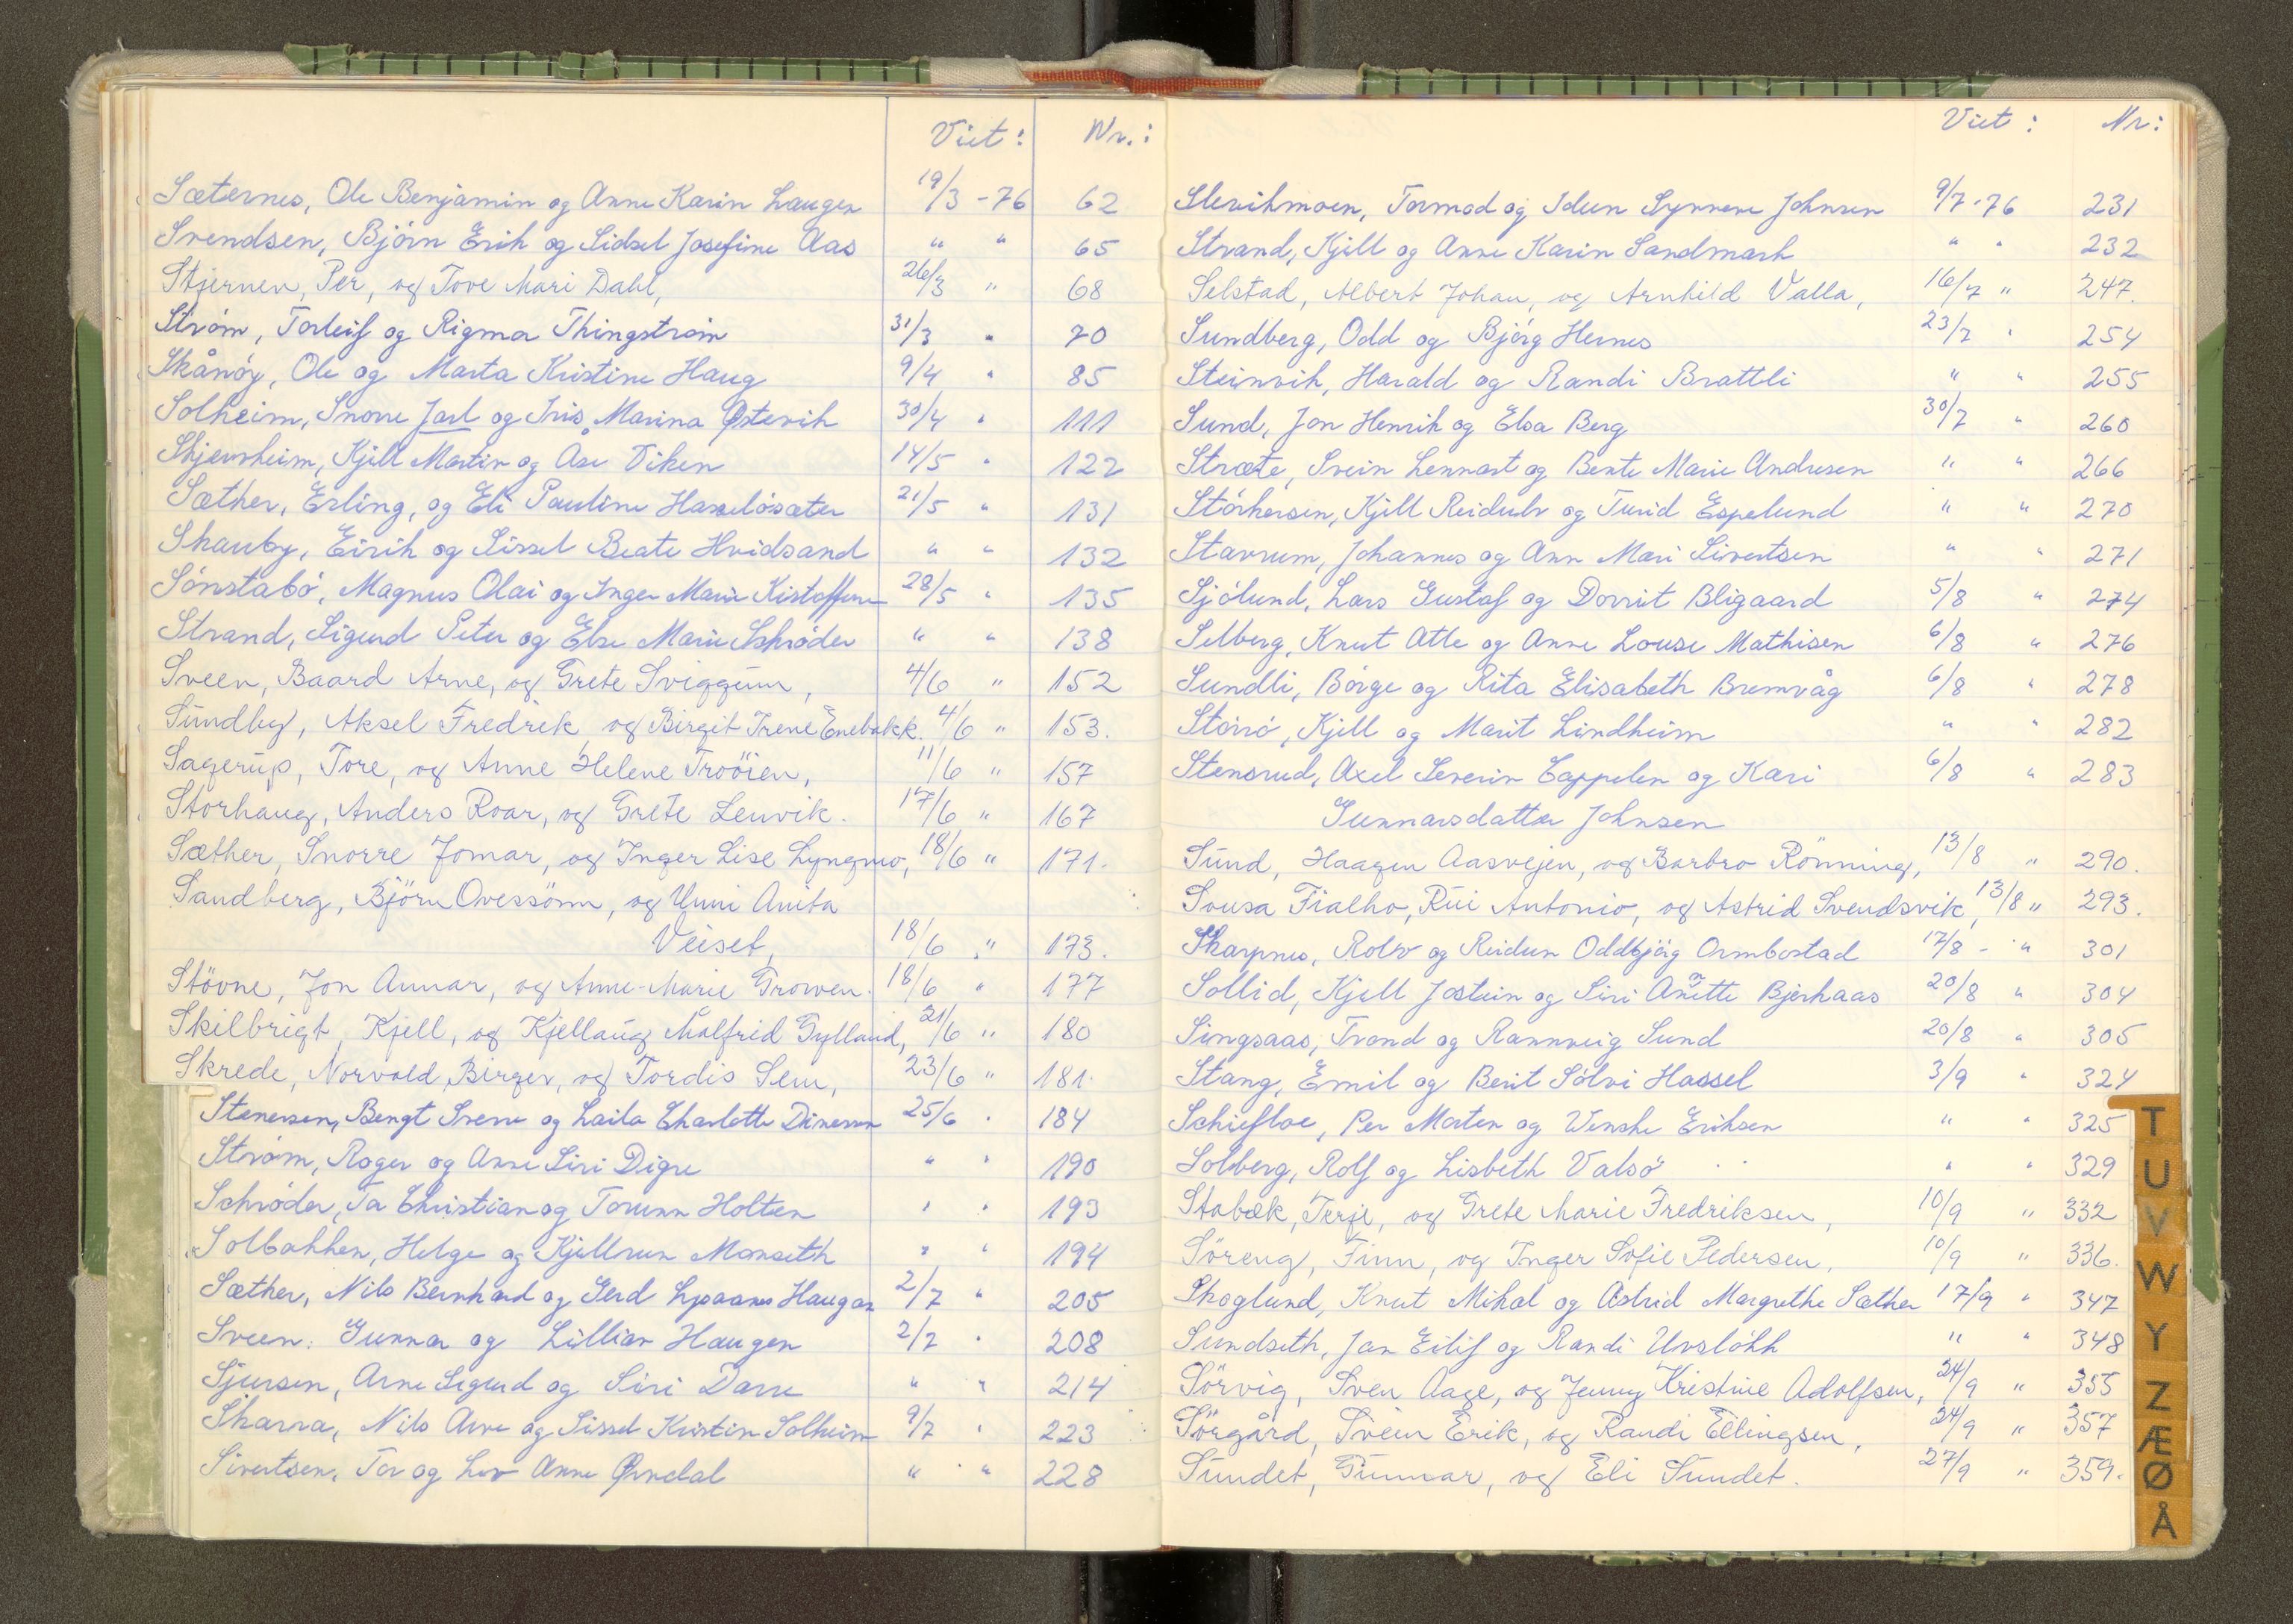 Viet: Nr.:
Sæternes, Ole Benjamin og Anne Karin Haugen 19/3 - 76 62
Svendsen, Bjørn Erik og Sidsel Josefine Aas " " 65
Stjernen, Per, og Tove Mari Dahl, 26/3 " 68
Strøm, Torleif og Rigmor Thingstrøm 31/3 " 70
Skånøy, Ole og Marta Kristine Haug 9/4 " 85
Solheim, Snorre Jarl og Iris Marina Østevik 30/4 " 111
Skjevsheim, Kjell Martin og Åse Viken 14/5 " 122
Sæther, Erling, og Eli Pauline Hasseløsæter 21/5 " 131
Skauby, Eirik og Sissel Beate Hvidsand " " 132
Sønstabø, Magnus Olai og Inger Marie 28/5 " 135
Strand, Sigurd Peter og Else Marie Schrøder " " 138
Sveen, Baard Arne, og Grete Sviggum, 4/6 " 152
Sundby, Aksel Fredrik og Birgit Irene Enebakk. 4/6 " 153.
Sagerup, Tore, og Anne Helene Trööien, 11/6 " 157
Storhaug, Anders Roar, og Grete Lenvik. 17/6 " 167
Sæther, Snorre Jomar, og Inger Lise Lyngmo, 18/6 " 171.
Sandberg, Björn Ovessönn, og Unni Anita
Veiset, 18/6 " 173.
Stövne, Jon Annar, og Anne-Marie Growen. 18/6 " 177
Skilbrigt, Kjell, og Kjellaug Målfrid Gylland, 21/6 " 180
Skrede, Norvald Birger, og Tordis Sem, 23/6 " 181.
Stenersen, Bengt Sverre og Laila Charlotte Dinesen 25/6 " 184
Strøm, Roger og Anne Siri Digre " " 190
Schrøder, Ta Christian og Torunn Holten " " 193
Solbakken, Helge og Kjellrun Monseth " " 194
Sæther, Nils Bernhard og Gerd Haugan 2/7 " 205
Sveen, Gunnar og Lillian Haugen 2/7 " 208
Sjursen, Arne Sigurd og Siri Darre " " 214
Skarra, Nils Arve og Sissel Kristin Solheim 9/7 " 223
Sivertsen, Tor og Liv Anne Ørndal " " 228
Viet: Nr:
Slevikmoen, Tormod og Idun Synnøve Johnsen 9/7-76 231
Strand, Kjell og Anne Karin Sandmark " " 232
Selstad, Albert Johan, og Arnhild Valla, 16/7 " 247.
Sundberg, Odd og Bjørg Hernes 23/7 " 254
Steinvik, Harald og Randi Brattli " " 255
Sund, Jon Henrik og Elsa Berg 30/7 " 260
Stræte, Svein Lennart og Bente Marie Andresen " " 266
Størkersen, Kjell Reidulv og Turid Espelund " " 270
Stavrum, Johannes og Ann Mari Sivertsen " " 271
Sjølund, Lars Gustaf og Dorrit Bligaard 5/8 " 274
Selberg, Knut Atle og Anne Louse Mathisen 6/8 " 276
Sundli, Børge og Rita Elisabeth Bremvåg 6/8 " 278
Storrø, Kjell og Marit Lindheim " " 282
Stensrud, Axel Severin Cappelen og Kari 6/8 " 283
Gunnarsdatter Johnsen
Sund, Haagen Aasvejen, og Barbro Rönning, 13/8 " 290.
Sousa Fialho, Rui Antonio, og Astrid Svendsvik, 13/8 " 293.
Skarpnes, Rolv og Reidun Oddbjørg Ormbostad 17/8 - " 301
Sollid, Kjell Jostein og Siri Anette Bjerkaas 20/8 " 304
Singsaas, Trond og Rannveig Sund 20/8 " 305
Stang, Emil og Berit Sølvi Hassel 3/9 " 324
Schiefloe, Per Morten og Wenche Eriksen " " 325
Solberg, Rolf og Lisbeth Valsø " " 329
Stabæk, Terje, og Grete Marie Fredriksen, 10/9 " 332
Söreng, Finn, og Inger Sofie Pedersen, 10/9 " 336.
Skoglund, Knut Mikal og Astrid Margrethe Sæther 17/9 " 347
Sundseth, Jan Eilif og Randi Ursløkk " " 348
Sörvig, Sven Aage, og Jenny Kristine Adolfsen, 24/9 " 355
Sörgård, Svein Erik, og Randi Ellingsen, 24/9 " 357
Sundet, Gunnar, og Eli Sundet. 27/9 " 359.
T
U
V
W
Y
Z
Æ
Ø
Å